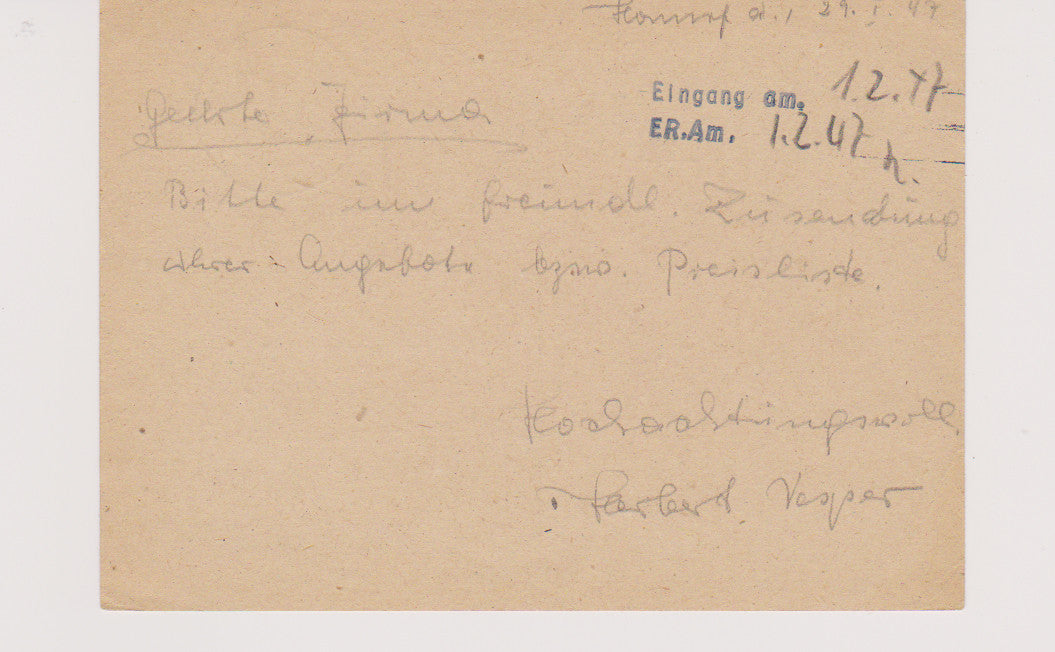 d., 29. I. 47
Eingang am. 1.2.47
ER.Am. 1.2.47
Geehrte Firma
Bitte um freundl. Zusendung
ihrer Angebote bzw. Preisliste.
Hochachtungsvoll
Herbert Vesper